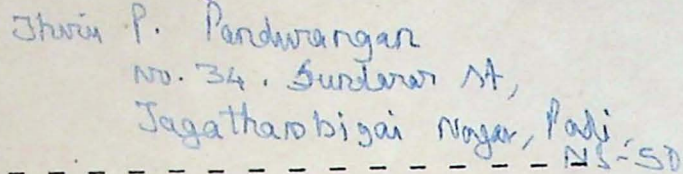 Thiru P. Pandurangan
No. 34, Sundarar St,
Jagathambigai Nagar, Padi,